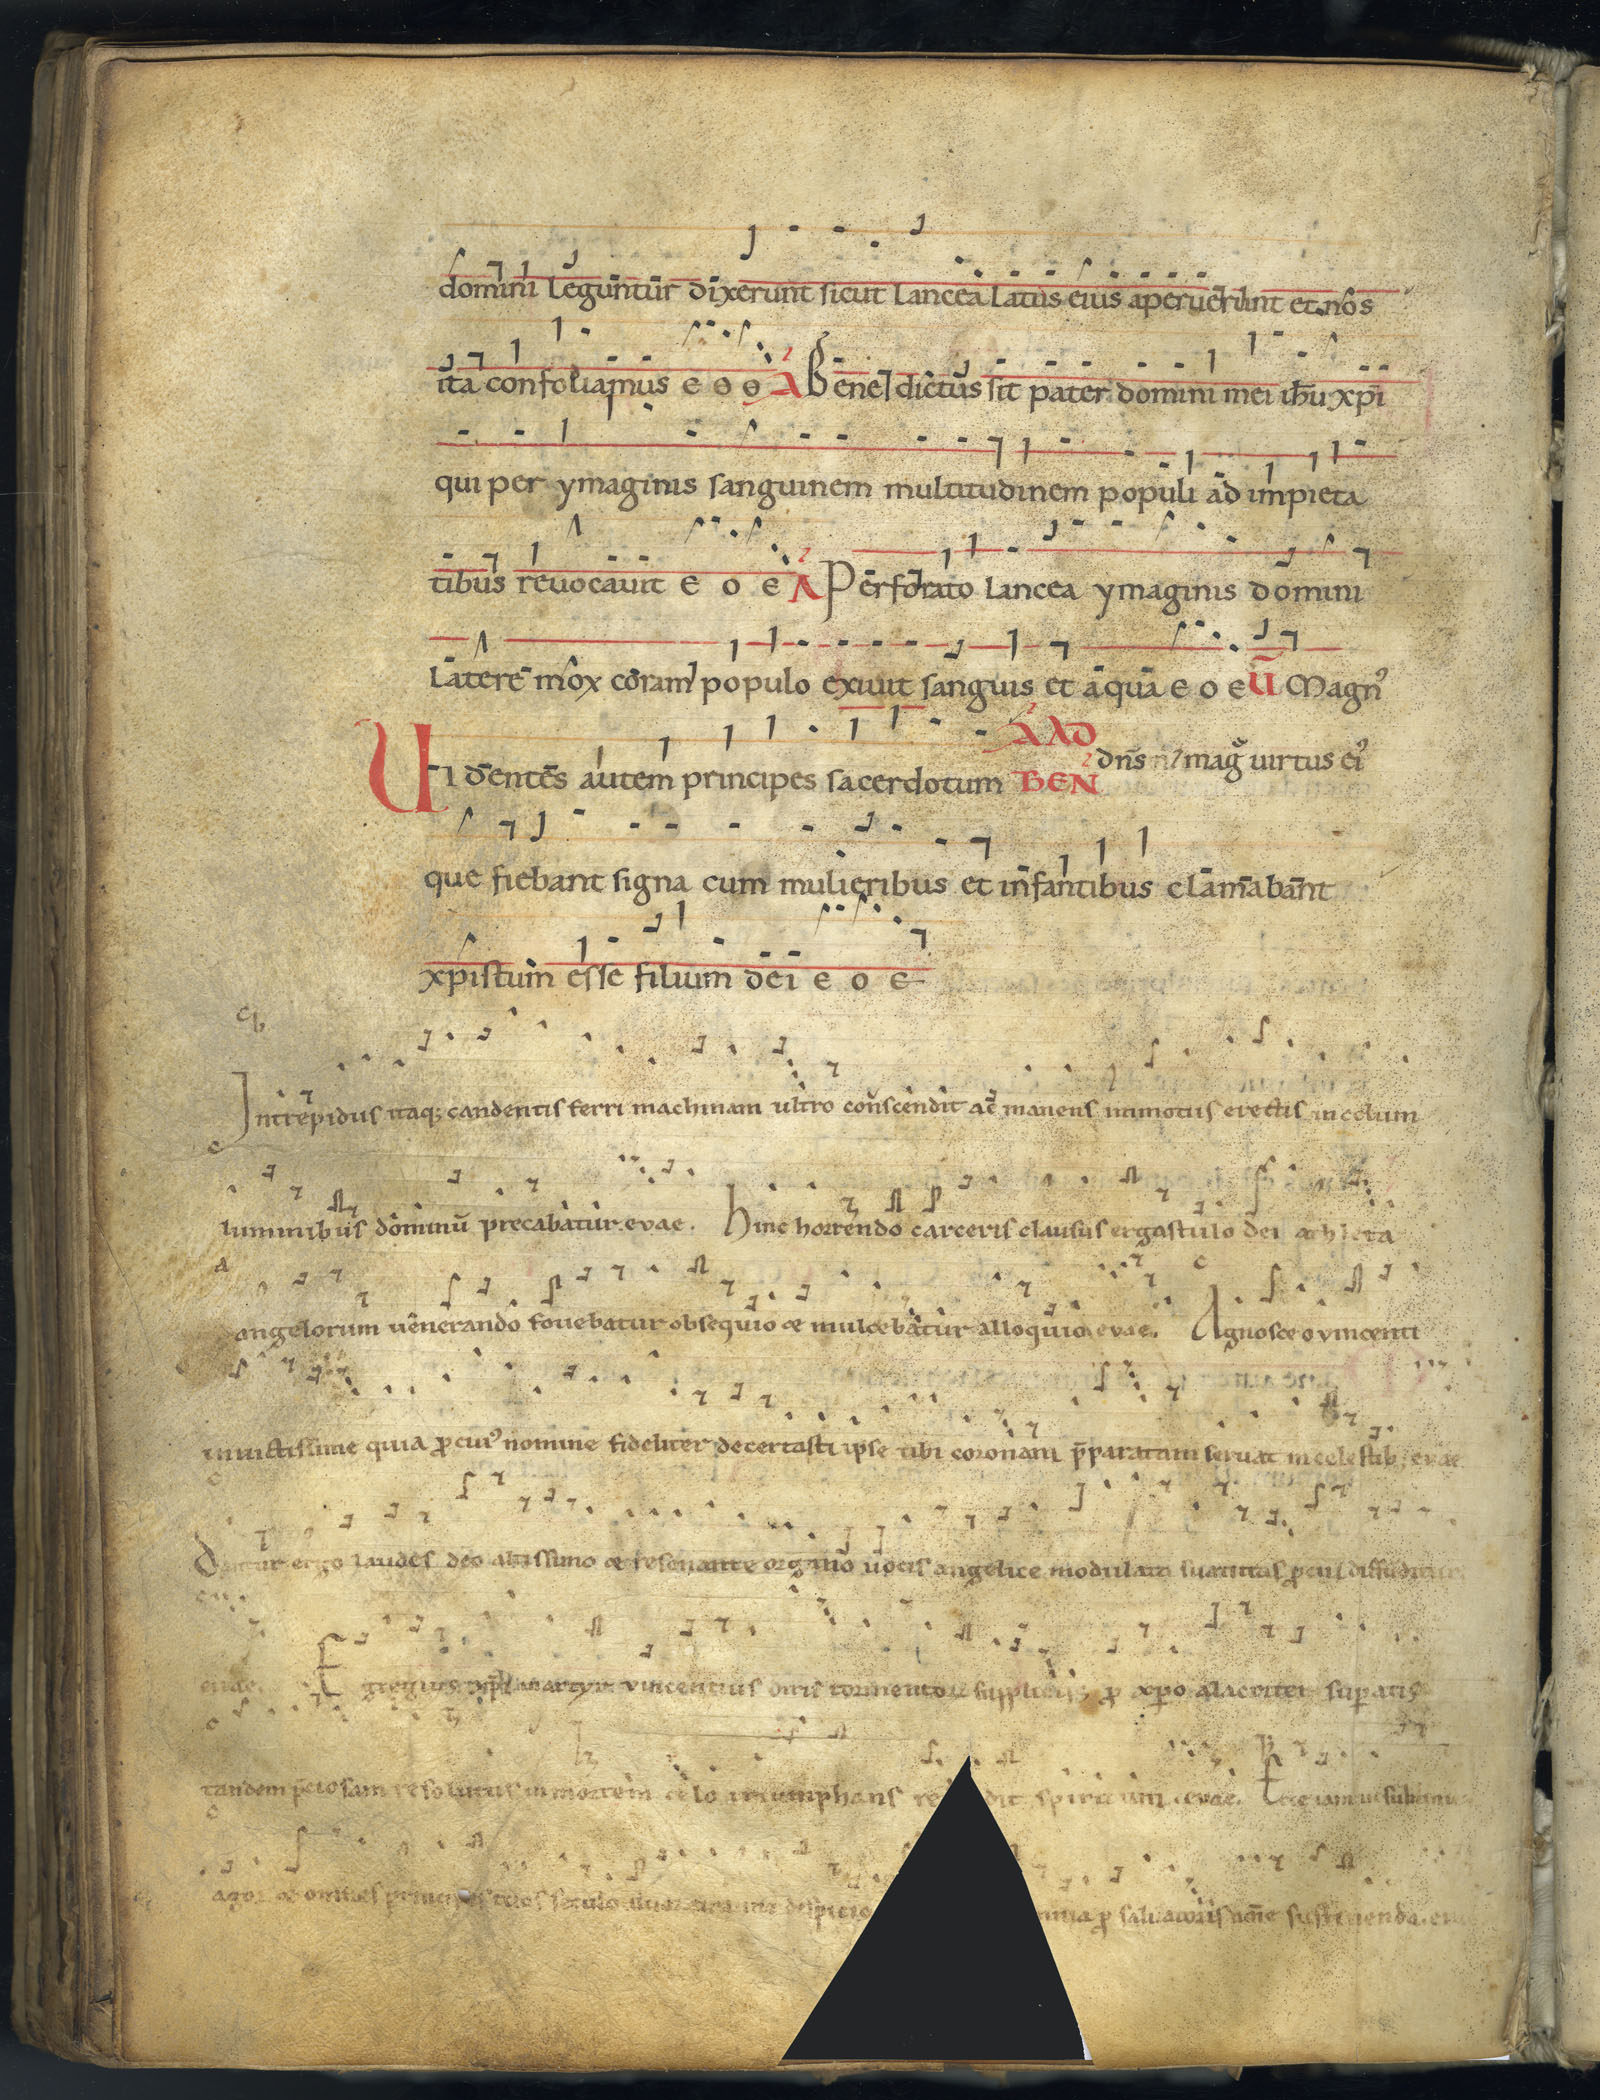 domini leguntur dixerunt sicut lancea latus eius aperuerunt et nos
ita confodiamus e o e A Benedictus sit pater domini mei ihu xpi
qui per ymaginis sanguinem multitudinem populi ad impieta
tibus revocavit e o e A Perforato lancea ymaginis domini
latere mox coram populo exivit sanguis et aqua e o e V Magn
A AD
dns mag uirtus ei
Videntes autem principes sacerdotum BEN
que fiebant signa cum mulieribus et infantibus clamabant
xpistum esse filium dei e o e
Intrepidus itaq; candentis ferri machinam ultro conscendit ac manens inmotus erectis in celum
luminibus dominu precabatur evae. Hinc horrendo carceris clausus ergastulo dei athleta
angelorum venerando fovebatur obsequio & mulcebatur alloquio evae. Agnosce o vincenti
invictissime quia p cui nomine fideliter decertasti ipse tibi coronam pparatam servat in celestib; evae
Dantur ergo laudes deo altissimo & resonante organo vocis angelice modulata suavitas pcul diffunditur
evae. Egregius martyr vincentius diris tormento suppliciis p xpo alacriter supatis
tandem pciosam resolutus in mortem celo triumphans re dit spiritum. evae. Ecce iam in sublime
ago & omnes principes tuos seculo despicio p salvatoris sustinenda. ev